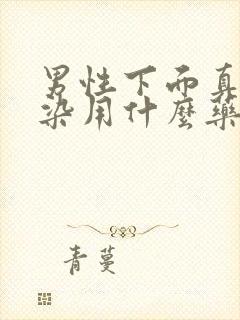 男性下面真
染用什麼藥
青蔓